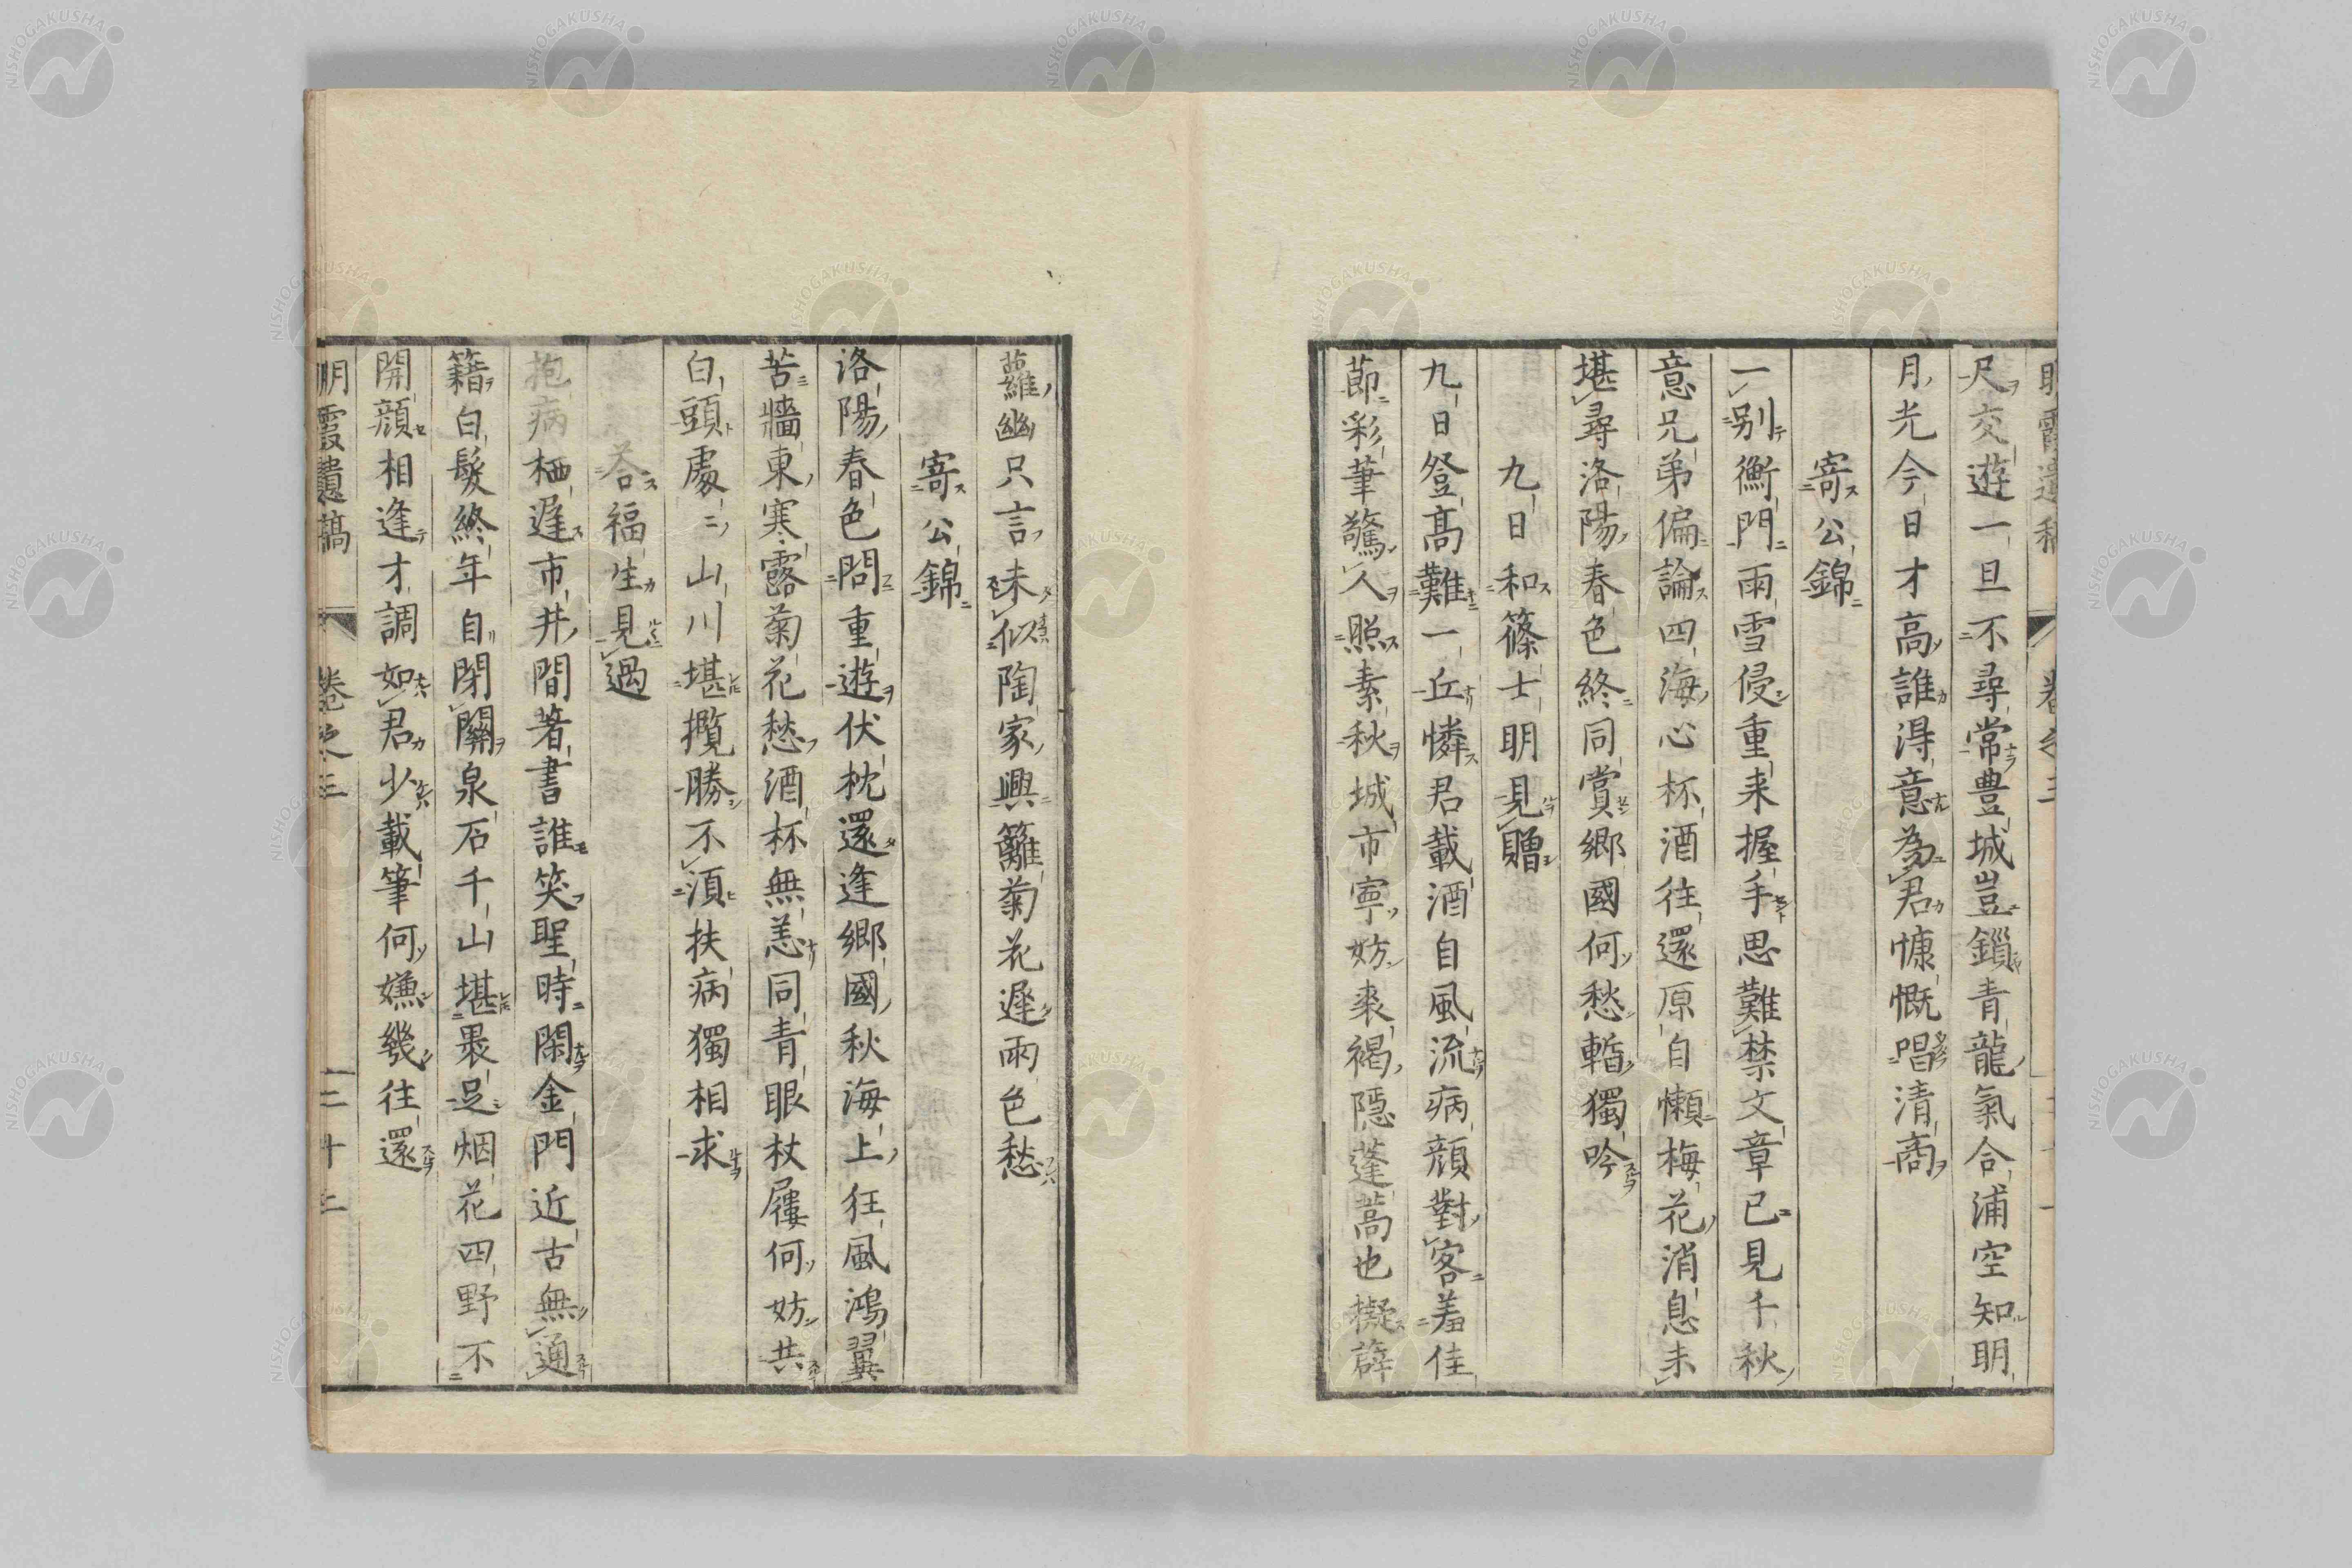 尺交遊一旦不尋常豊城豈鎖青龍氣合浦空知明
月光今日才高誰得意為君慷慨唱清商
寄公錦
一別衡門雨雪侵重来握手思難禁文章已見千秋
意兄弟偏論四海心杯酒往還原自懶梅花消息未
堪尋洛陽春色終同賞郷國何愁暫獨吟
九日和篠士明見贈
九日登高難一丘憐君載酒自風流病顔對客羞佳
節彩筆驚人照素秋城市寧妨裘褐隠蓬蒿也擬薜
蘿幽只言未似陶家興籬菊花遅雨色愁
寄公錦
洛陽春色問重遊伏枕還逢郷國秋海上狂風鴻翼
苦牆東寒露菊花愁酒杯無恙同青眼杖屨何妨共
白頭處〻山川堪攬勝不湏扶病獨相求
荅福生見過
抱病栖遅市井間著書誰笑聖時閑金門近古無通
籍白髮終年自閉關泉石千山堪裹足烟花四野不
開顔相逢才調如君少載筆何嫌幾往還
明霞遺稿 卷之三 二十二